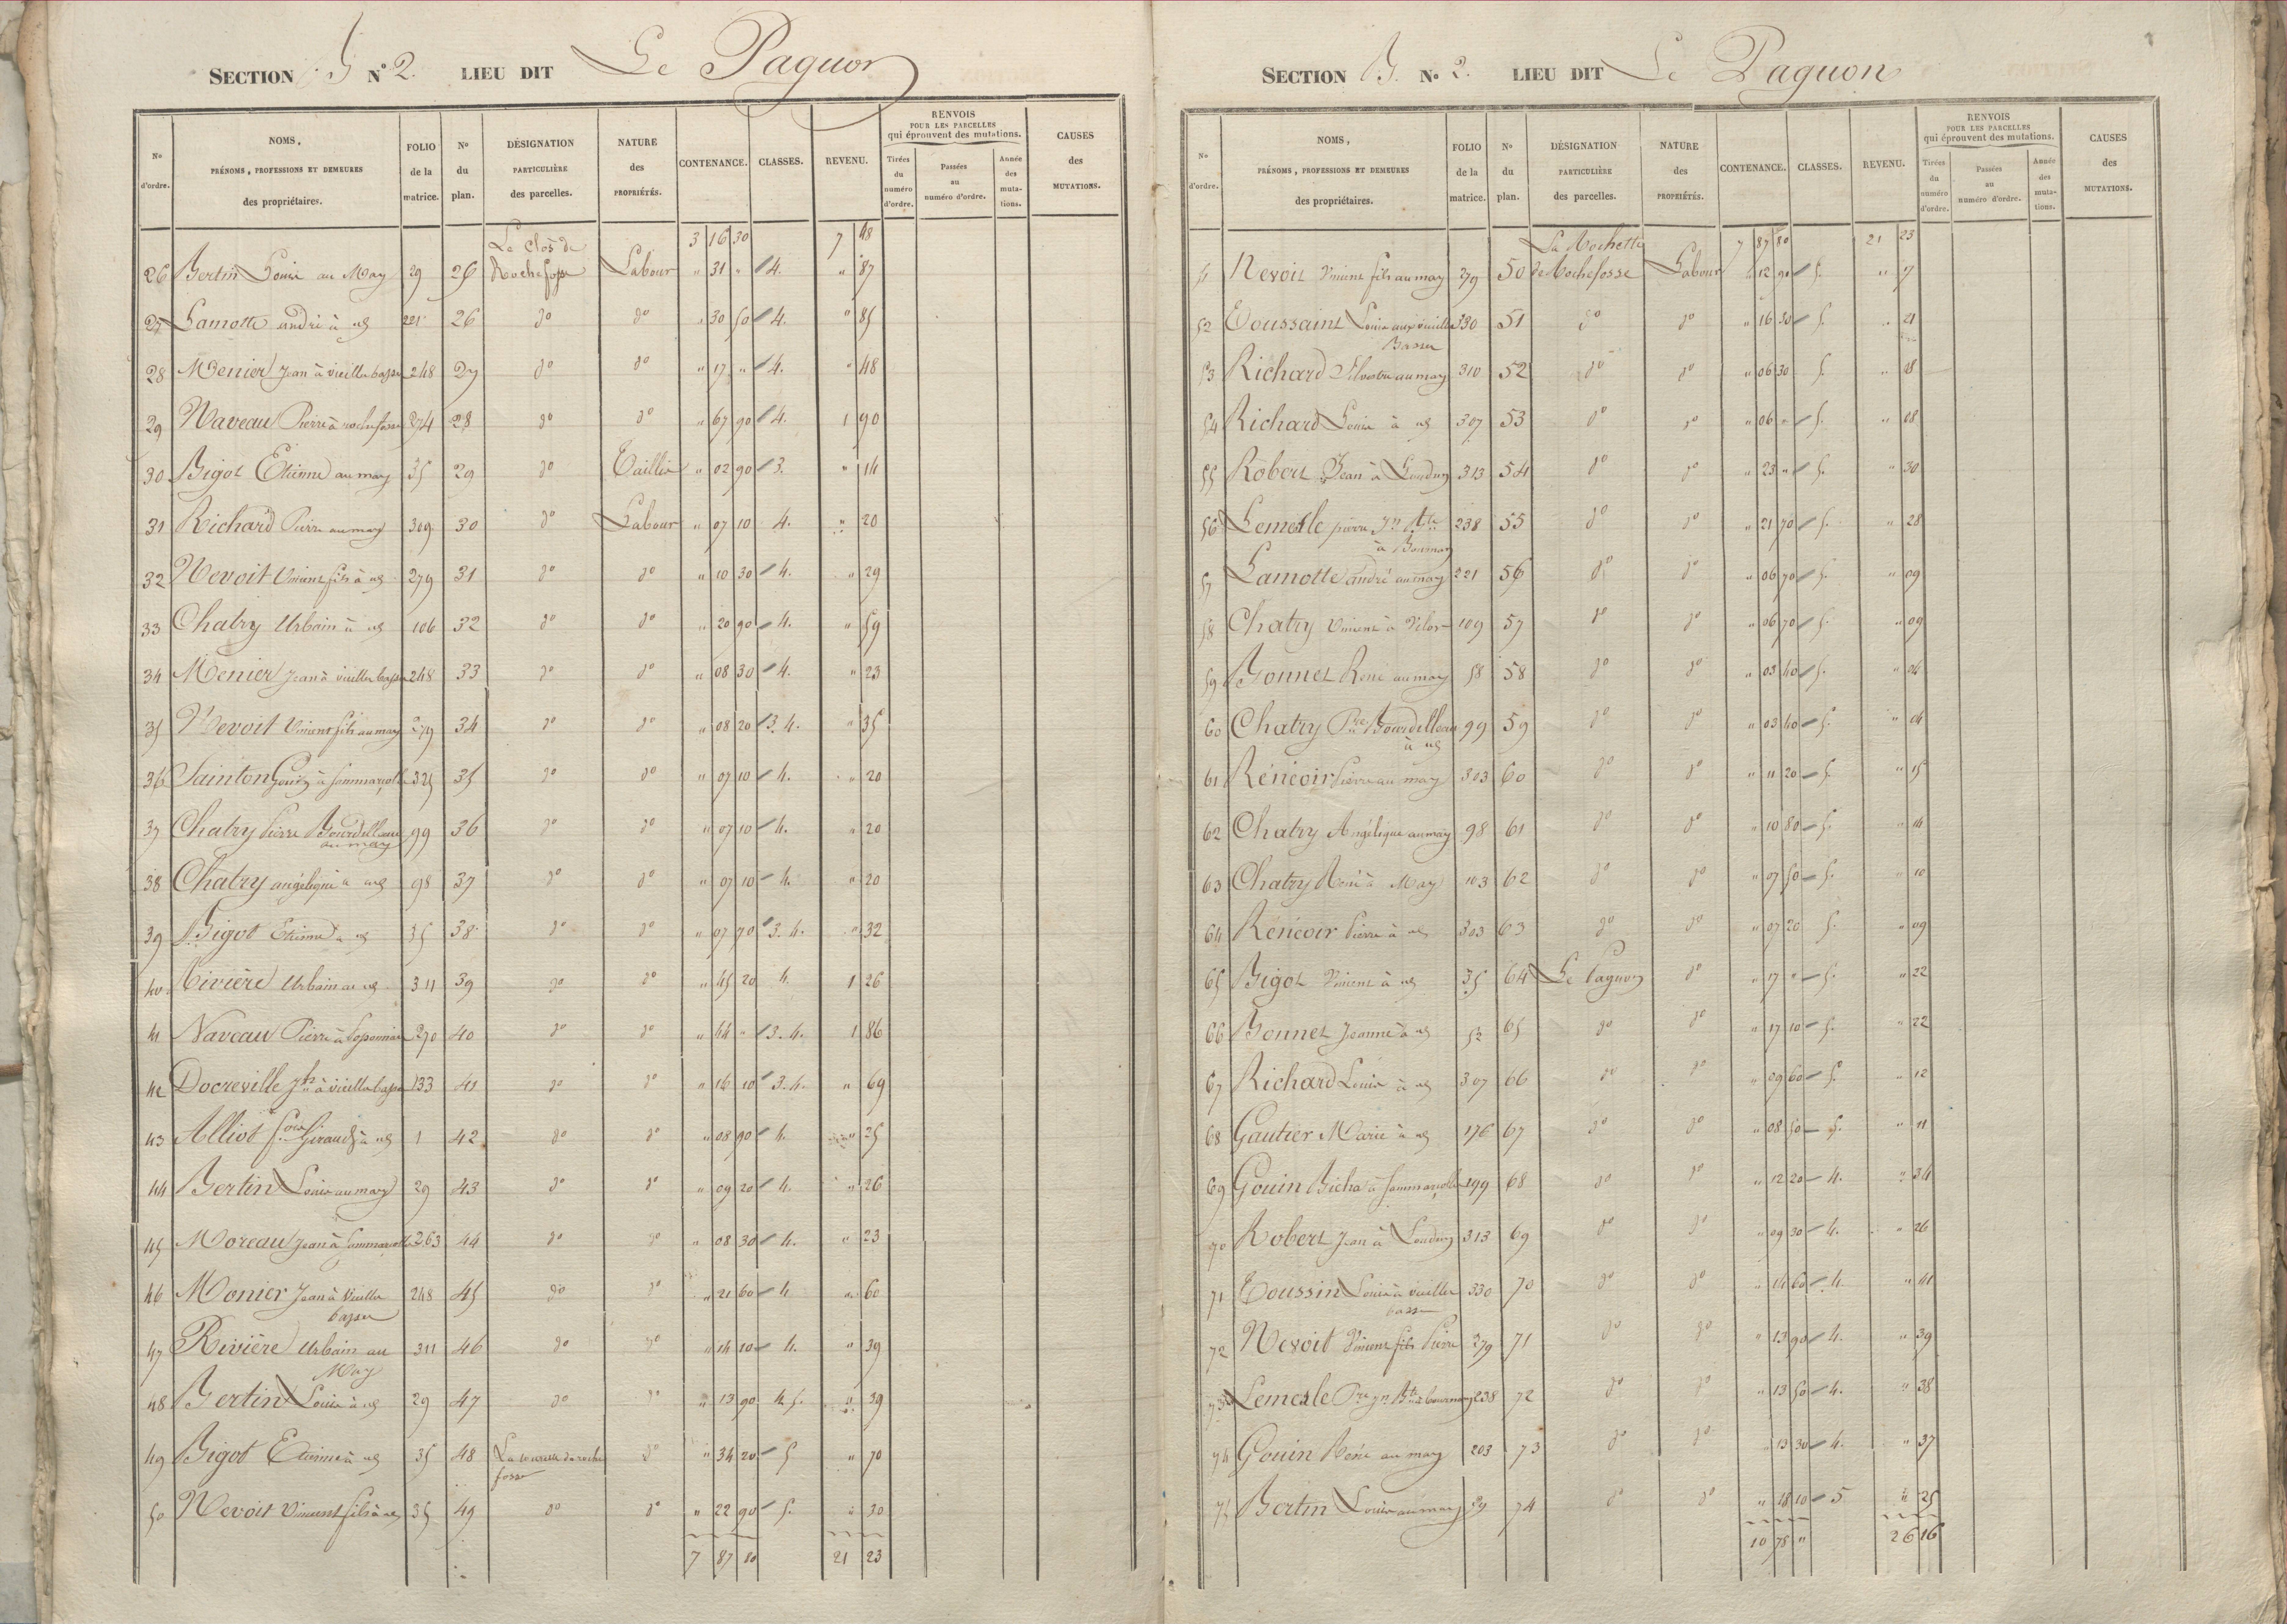 SECTION B N° 2. LIEU DIT Le Paguon
N° d'ordre. NOMS, PRÉNOMS, PROFESSIONS ET DEMEURES des propriétaires. FOLIO de la matrice. N° du plan. DÉSIGNATION PARTICULIÈRE des parcelles. NATURE des PROPRIÉTÉS. CONTENANCE. CLASSES. REVENU. RENVOIS POUR LES PARCELLES qui éprouvent des mutations. Tirées du numéro d'ordre. Passées au numéro d'ordre. Année des mutations. CAUSES des MUTATIONS.
3 16 30 7 48
26 Bertin Louis au May 29 25 Le clos de Rochefosse Labour " 31 " 4. " 87
27 Lamotte andré à id 221 26 do do " 30 50 4. " 85
28 Menier Jean à vieilles basses 248 27 do do " 17 " 4. " 48
29 Naveau Pierre à rochefosse 274 28 do do " 67 90 4. 1 90
30 Bigot Etienne au may 35 29 do Taillis " 02 90 3. " 14
31 Richard Pierre au may 309 30 do Labour " 07 10 4. " 20
32 Nevoit Vincent fils à id 279 31 do do " 10 30 4. " 29
33 Chatry Urbain à id 106 32 do do " 20 90 4. " 59
34 Menier Jean à vieilles basses 248 33 do do " 08 30 4. " 23
35 Nevoit Vincent fils au may 279 34 do do " 08 20 3. 4. " 35
36 Sainton Louis à Sammarçolle 325 35 do do " 07 10 4. " 20
37 Chatry Pierre Bourdilleau au may 99 36 do do " 07 10 4. " 20
38 Chatry angélique à id 98 37 do do " 07 10 4. " 20
39 Bigot Etienne à id 35 38 do do " 07 70 3. 4. " 32
40 Rivière Urbain à id 311 39 do do " 45 20 4. 1 26
41 Naveau Pierre à 270 40 do do " 44 " 3. 4. 1 86
42 Docreville Jh à vieilles basses 133 41 do do " 16 10 3. 4. " 69
43 Alliot fois Girault à id 1 42 do do " 08 90 4. " 25
44 Bertin Louis au may 29 43 do do " 09 20 4. " 26
45 Moreau Jean à Sammarçolle 263 44 do do " 08 30 4. " 23
46 Monier Jean à Vieilles basses 248 45 do do " 21 60 4. " 60
47 Rivière Urbain au May 311 46 do do " 14 10 4. " 39
48 Bertin Louis à id 29 47 do do " 13 90 4. 5. " 39
49 Bigot Etienne à id 35 48 La de roche fosse do " 34 20 5 " 70
50 Nevoit Vincent fils à id 35 49 do do " 22 90 5. " 30
7 87 80 21 23
SECTION B. N° 2. LIEU DIT Le Paguon
N° d'ordre. NOMS, PRÉNOMS, PROFESSIONS ET DEMEURES des propriétaires. FOLIO de la matrice. N° du plan. DÉSIGNATION PARTICULIÈRE des parcelles. NATURE des PROPRIÉTÉS. CONTENANCE. CLASSES. REVENU. RENVOIS POUR LES PARCELLES qui éprouvent des mutations. Tirées du numéro d'ordre. Passées au numéro d'ordre. Année des mutations. CAUSES des MUTATIONS.
7 87 80 21 23
51 Nevoit Vincent fils au may 279 50 La Rochette de Rochefosse Labour " 12 90 5. " 17
52 Toussaint Louis aux vieilles Basses 330 51 do do " 16 30 5. " 21
53 Richard Silvestre au may 310 52 do do " 06 30 5. " 08
54 Richard Louis à id 307 53 do do " 06 " 5. " 08
55 Robert Jean à Loudun 313 54 do do " 23 " 5. " 30
56 Lemesle pierre à Bournan 238 55 do do " 21 70 5. " 28
57 Lamotte andré au may 221 56 do do " 06 70 5. " 09
58 Chatry Vincent à 109 57 do do " 06 70 5. " 09
59 Bonnet René au may 58 58 do do " 03 40 5. " 04
60 Chatry Pre Bourdilleau à id 99 59 do do " 03 40 5. " 04
61 Rénéoir Pierre au may 303 60 do do " 11 20 5. " 15
62 Chatry Angélique au may 98 61 do do " 10 80 5. " 14
63 Chatry René à May 103 62 do do " 07 50 5. " 10
64 Rénéoir Pierre à id 303 63 do do " 07 20 5. " 09
65 Bigot Vincent à id 35 64 Le Paguon do " 17 " 5. " 22
66 Bonnet Jeanne à id 52 65 do do " 17 10 5. " 22
67 Richard Louis à id 307 66 do do " 09 60 5. " 12
68 Gautier Marie à id 176 67 do do " 08 50 5. " 11
69 Gouin Bicha à Sammarçolle 199 68 do do " 12 20 4. " 34
70 Robert Jean à Loudun 313 69 do do " 09 30 4. " 26
71 Toussin Louis à vieilles basses 330 70 do do " 14 60 4. " 41
72 Nevoit Vincent fils Pierre 279 71 do do " 13 90 4. " 39
73 Lemesle Pre à bournan 238 72 do do " 13 50 4. " 38
74 Gouin René au may 203 73 do do " 13 30 4. " 37
75 Bertin Louis au may 29 74 do do " 18 10 5 " 25
10 78 " 26 16